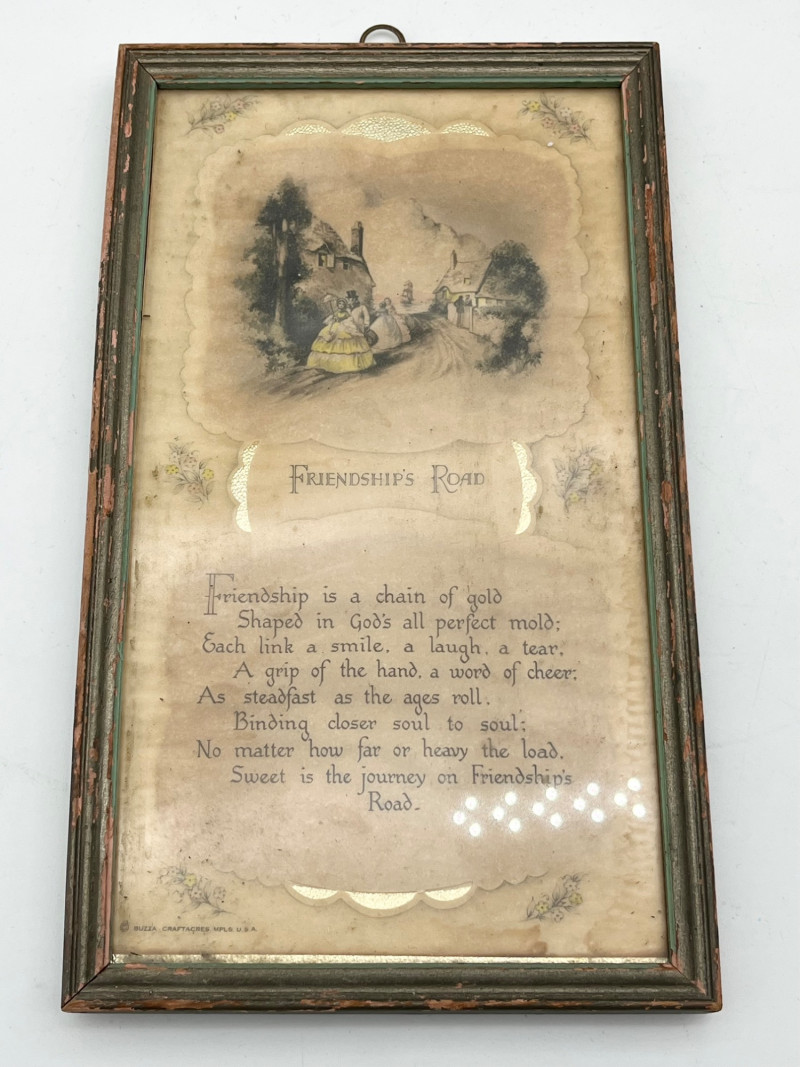 FRIENDSHIP'S ROAD
Friendship is a chain of gold
Shaped in God's all perfect mold;
Each link a smile, a laugh, a tear,
A grip of the hand, a word of cheer;
As steadfast as the ages roll,
Binding closer soul to soul;
No matter how far or heavy the load,
Sweet is the journey on Friendship's
Road.
© BUZZA CRAFTACRES MPLS U.S.A.